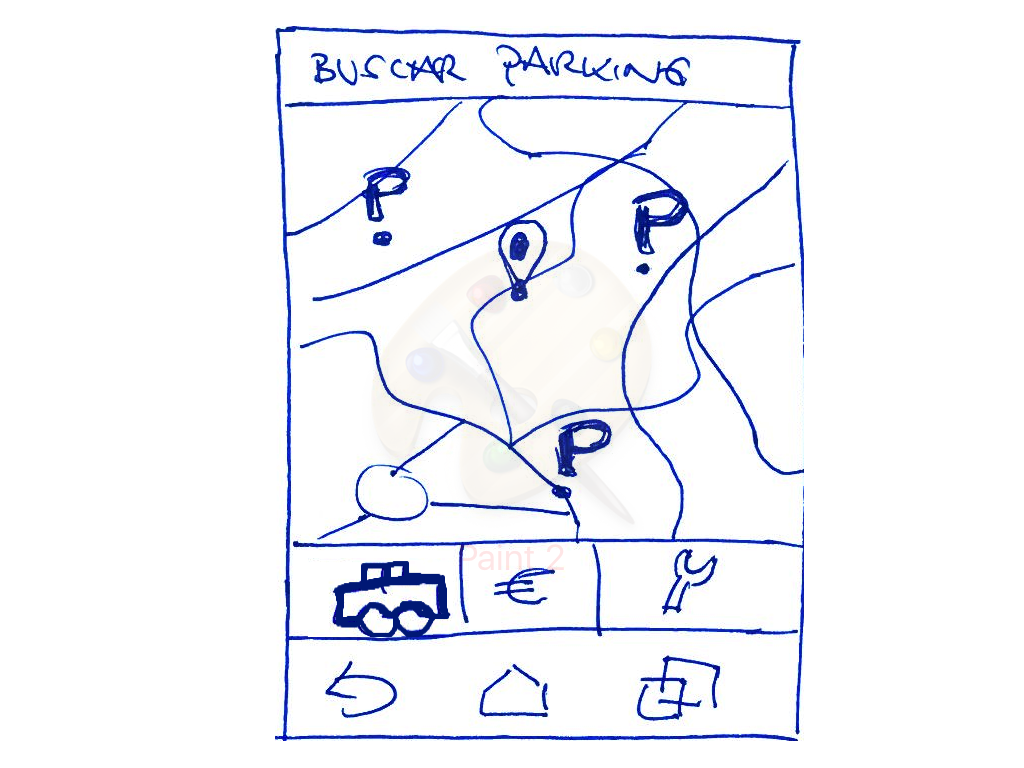 BUSCAR PARKING
P
P
P
Paint 2
€